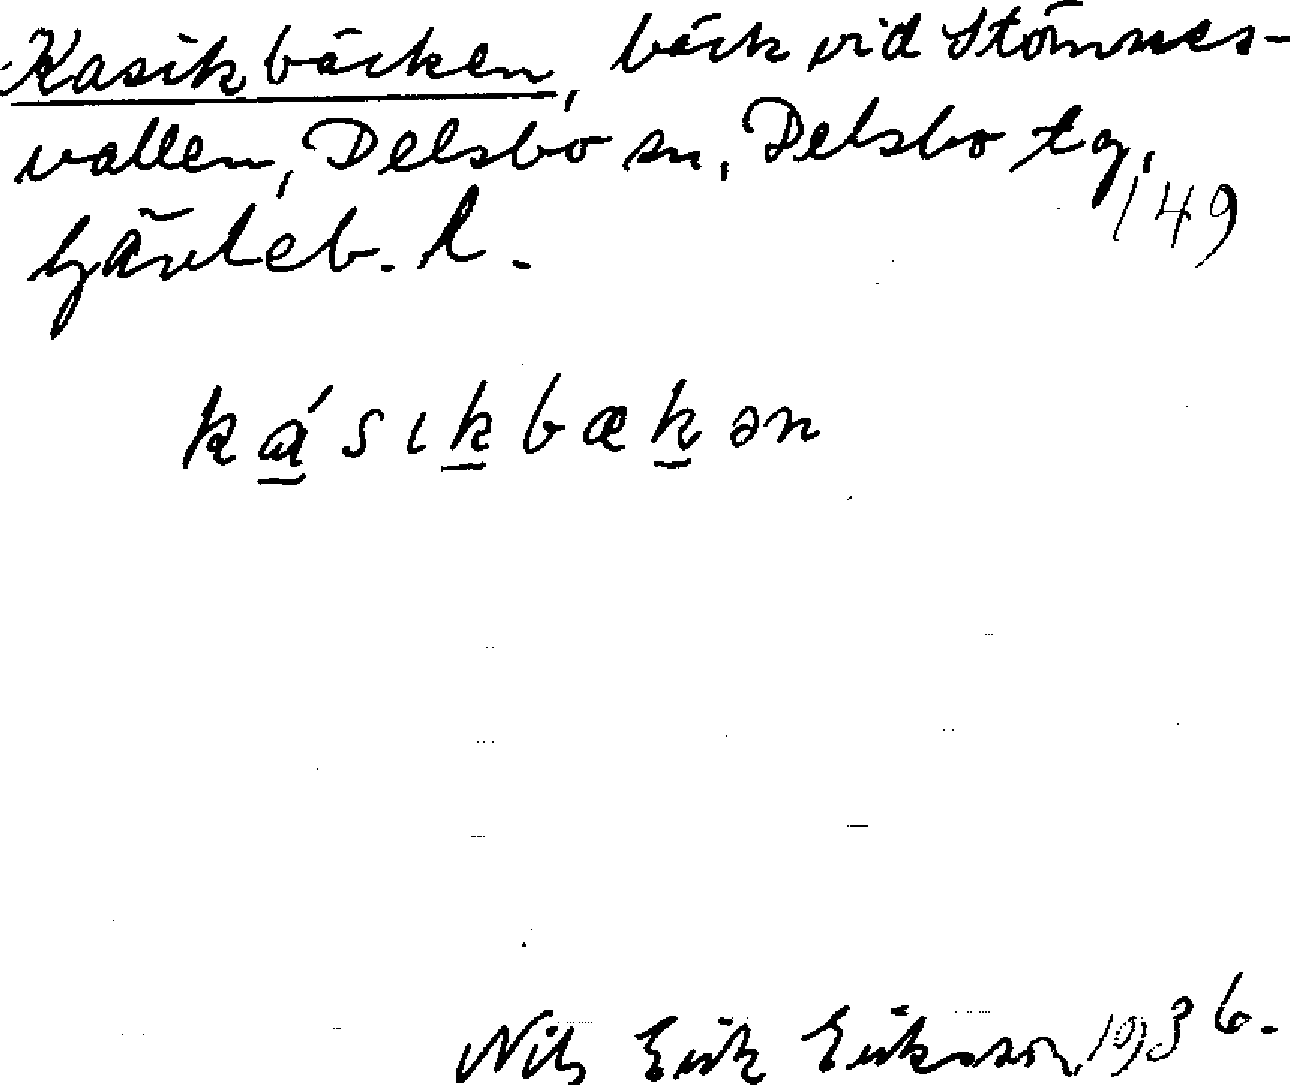 Kasikbäcken, bäck vid Stömnes-
vallen, Delsbo sn, Delsbo tg,
Gävleb. l. 149
ká̱sık̲bæk̲ən
Nils Erik Eriksson 1936.